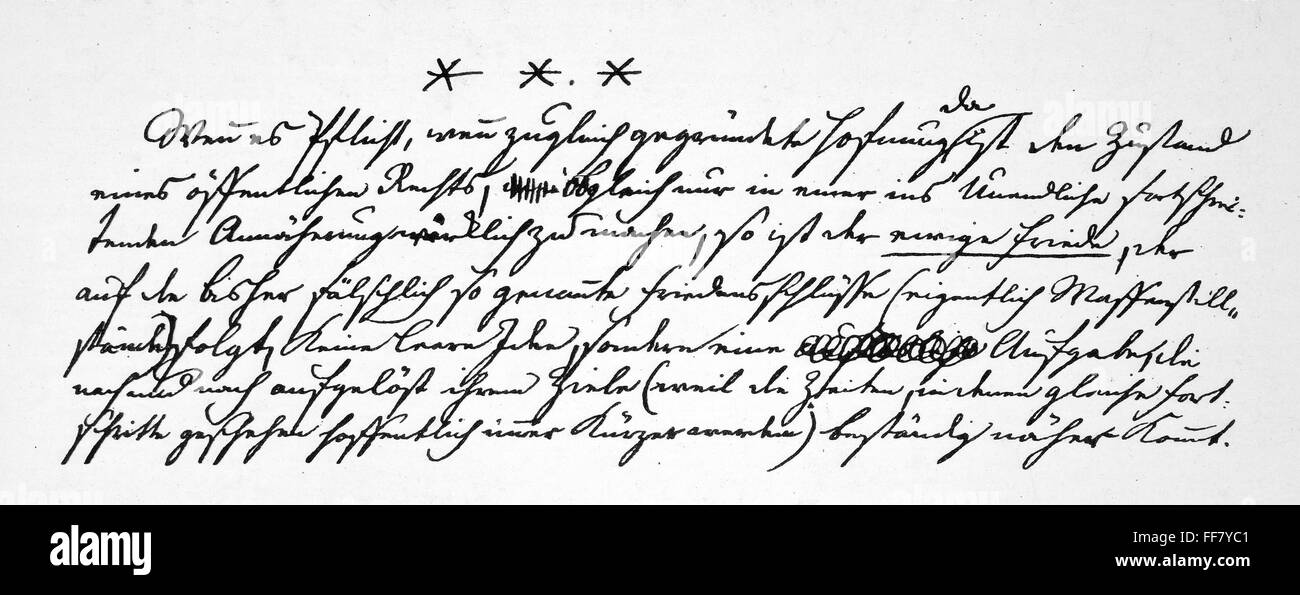 * * . *
Wenn es Pflicht, wenn zugleich gegründete Hofnung da ist den Zustand
eines öffentlichen Rechts, obgleich nur in einer ins Unendliche fortschrei-
tenden Annäherung wirklich zu machen, so ist der ewige Friede, der
auf die bisher fälschlich so genannte Friedensschlüsse (eigentlich Waffenstill-
stände) folgt, keine leere Idee, sondern eine Aufgabe, die
nach und nach aufgelöst ihrem Ziele (weil die Zeiten, in denen gleiche Fort-
schritte geschehen hoffentlich immer kürzer werden) beständig näher kommt.
alamy
Image ID: FF7YC1
www.alamy.com